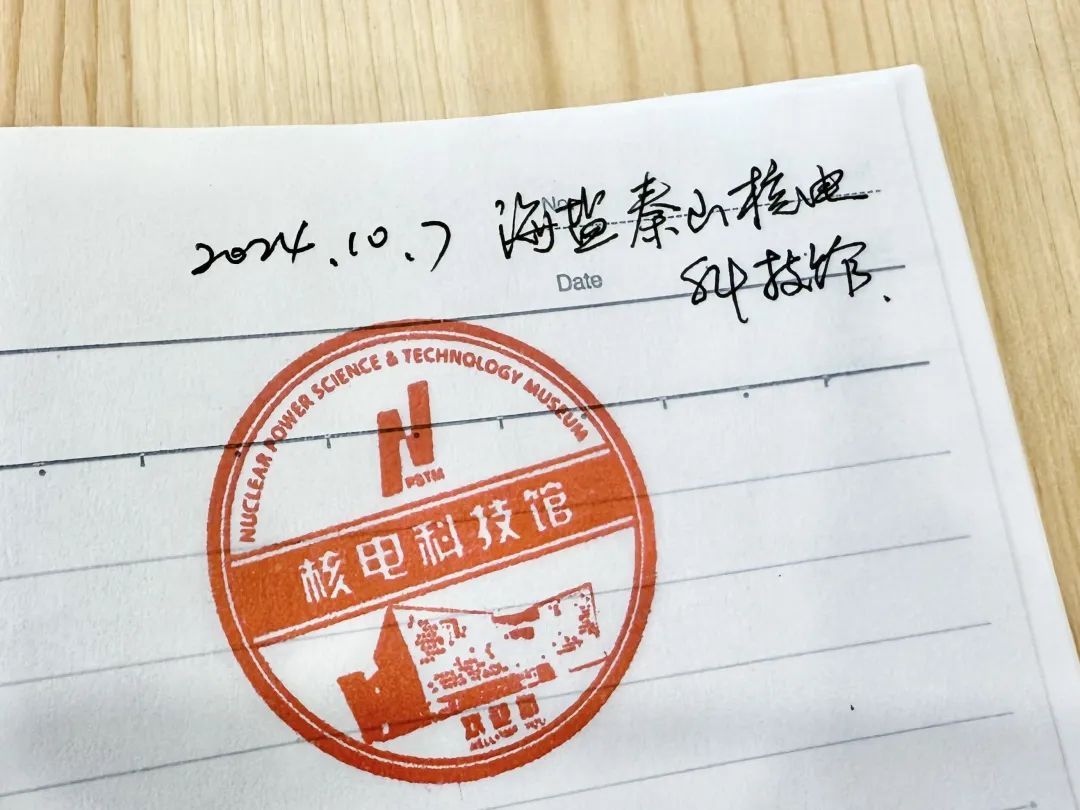 2024.10.7 海盐秦山核电
科技馆.
No
Date
NUCLEAR POWER SCIENCE & TECHNOLOGY MUSEUM
核电科技馆
欢迎您